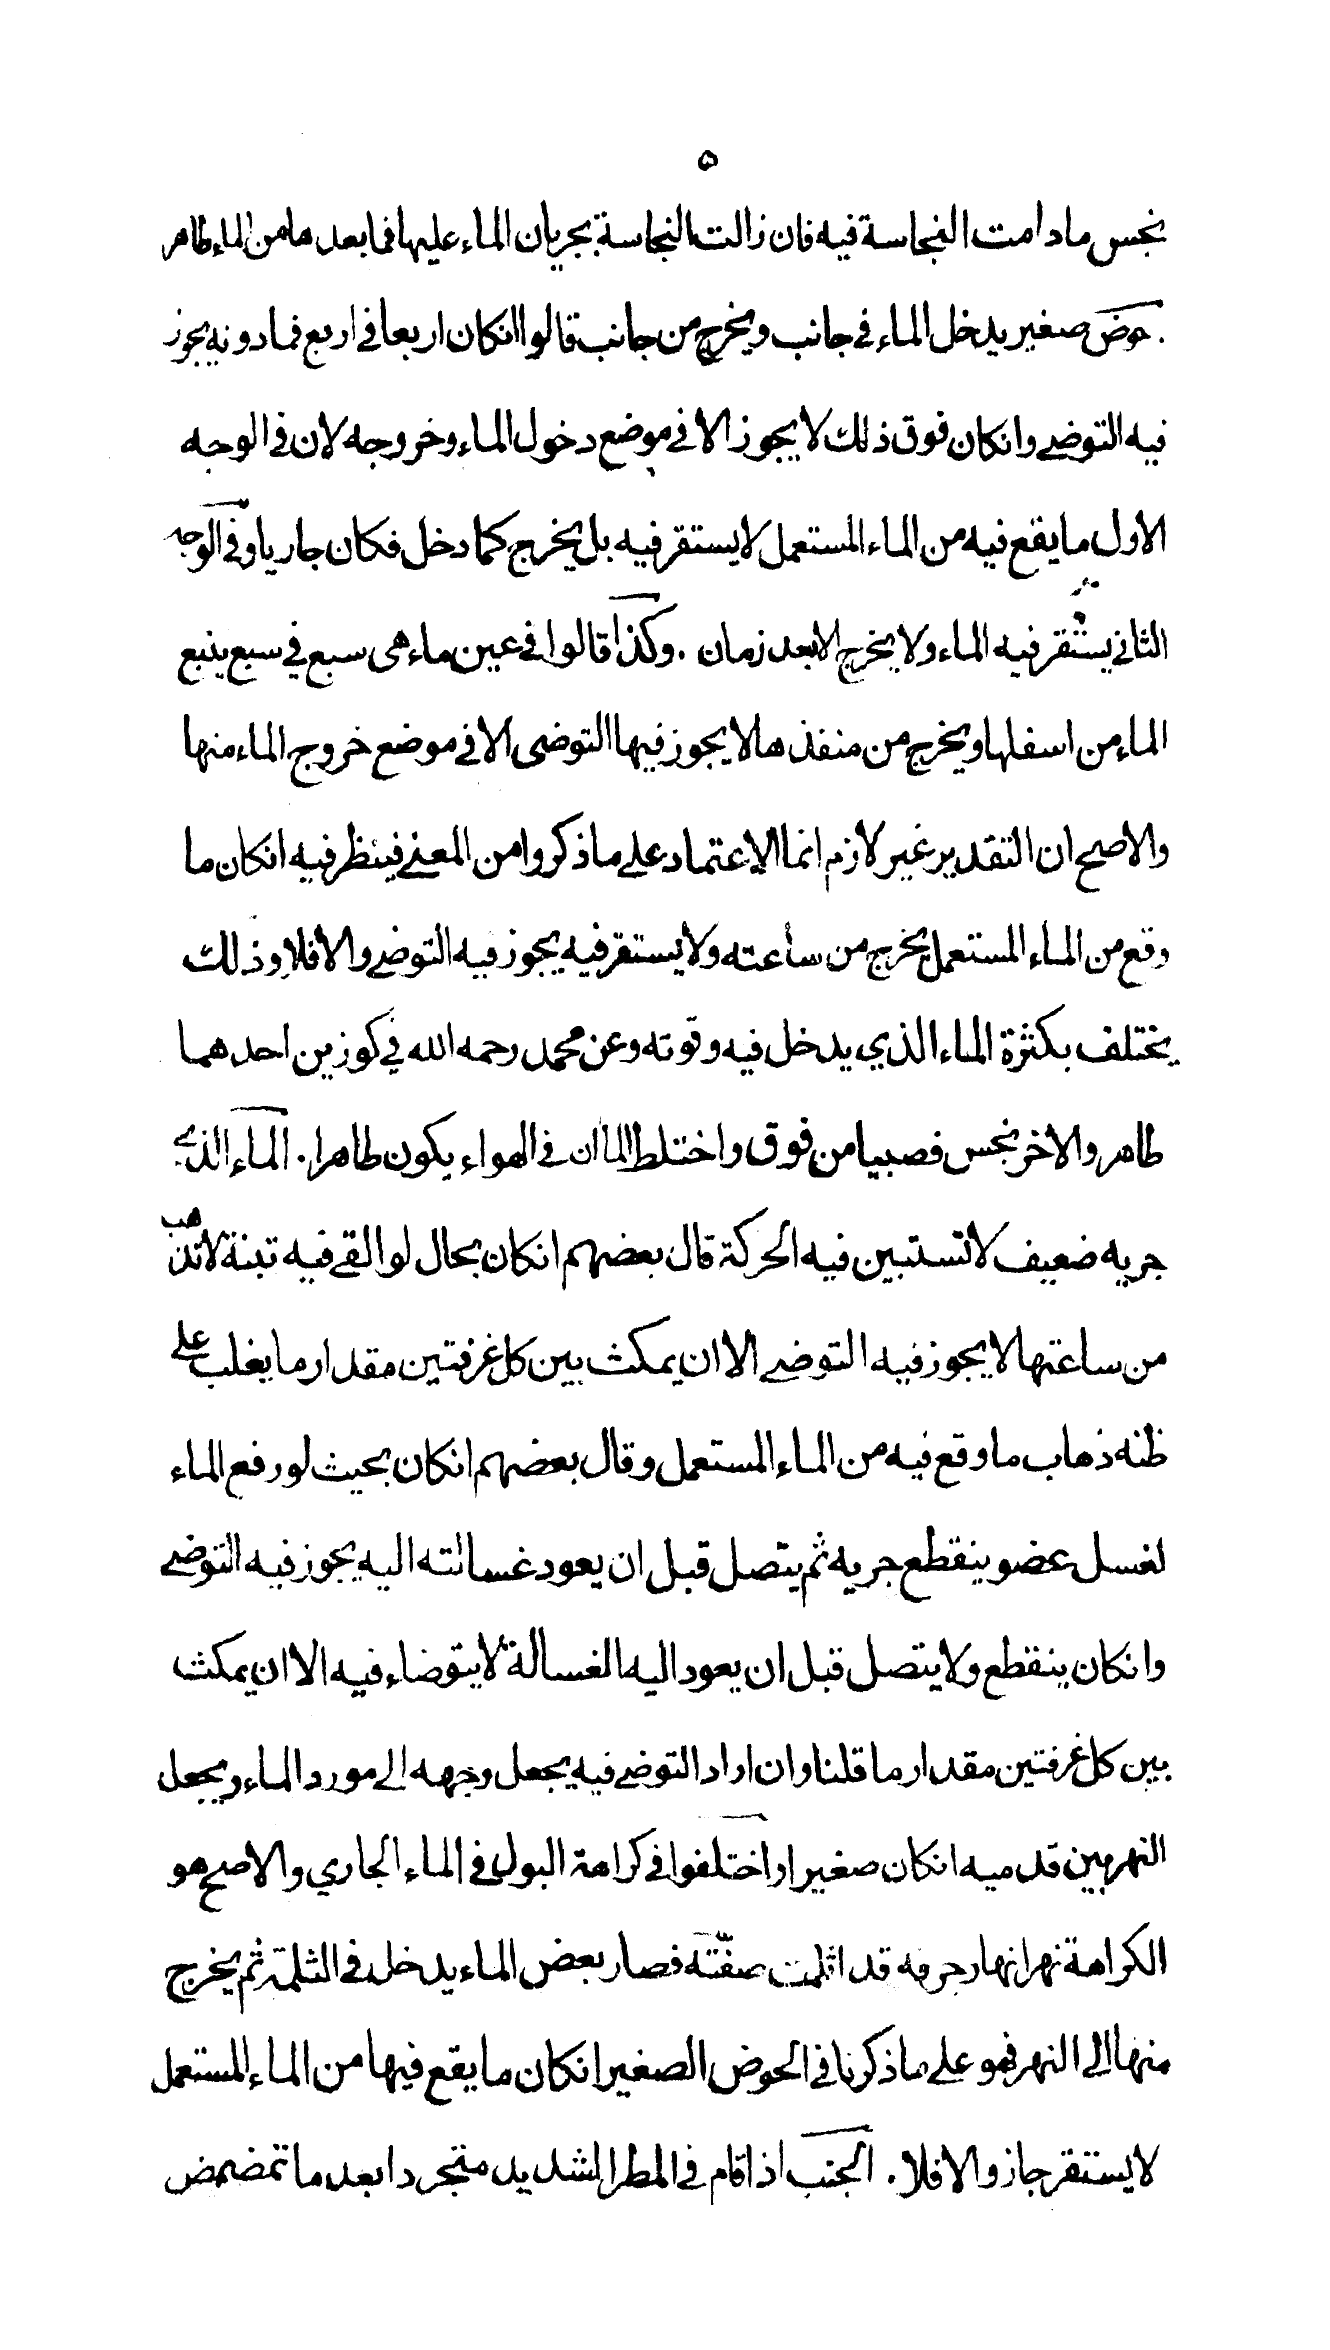 ۵
نجس مادامت النجاسة فيه فان زالت النجاسة بجريان الماء عليها فما بعدها من الماء طاهر
. حوض صغير يدخل الماء في جانب ويخرج من جانب قالوا انكان اربعا في اربع فمادونه يجوز
فيه التوضي وانكان فوق ذلك لا يجوز الا في موضع دخول الماء وخروجه لان في الوجه
الاول ما يقع فيه من الماء المستعمل لا يستقر فيه بل يخرج كما دخل فكان جاريا وفي الوجه
الثاني يستقر فيه الماء ولا يخرج الا بعد زمان . وكذا قالوا في عين ماء هي سبع في سبع ينبع
الماء من اسفلها ويخرج من منفذها لا يجوز فيها التوضي الا في موضع خروج الماء منها
والاصح ان التقدير غير لازم انما الاعتماد على ما ذكروا من المعنى فينظر فيه انكان ما
وقع من الماء المستعمل يخرج من ساعته ولا يستقر فيه يجوز فيه التوضي والا فلا وذلك
يختلف بكثرة الماء الذي يدخل فيه وقوته وعن محمد رحمه الله في كوزين احدهما
طاهر والاخر نجس فصبيا من فوق واختلط الماان في الهواء يكون طاهرا . الماء الذي
جريه ضعيف لا تستبين فيه الحركة قال بعضهم انكان بحال لو القى فيه تبنة لا تذهب
من ساعتها لا يجوز فيه التوضي الا ان يمكث بين كل غرفتين مقدار ما يغلب على
ظنه ذهاب ما وقع فيه من الماء المستعمل وقال بعضهم انكان بحيث لو رفع الماء
لغسل عضو ينقطع جريه ثم يتصل قبل ان يعود غسالته اليه يجوز فيه التوضي
وانكان ينقطع ولا يتصل قبل ان يعود اليه الغسالة لا يتوضاء فيه الا ان يمكث
بين كل غرفتين مقدار ما قلنا وان اراد التوضي فيه يجعل وجهه الى مورد الماء ويجعل
النهر بين قدميه انكان صغيرا واختلفوا في كراهة البول في الماء الجاري والاصح هو
الكراهة نهر انهار جرفه قد انثلمت ضفته فصار بعض الماء يدخل في الثلمة ثم يخرج
منها الى النهر فهو على ما ذكرنا في الحوض الصغير انكان ما يقع فيها من الماء المستعمل
لا يستقر جاز والا فلا . الجنب اذا قام في المطر الشديد متجردا بعد ما تمضمض